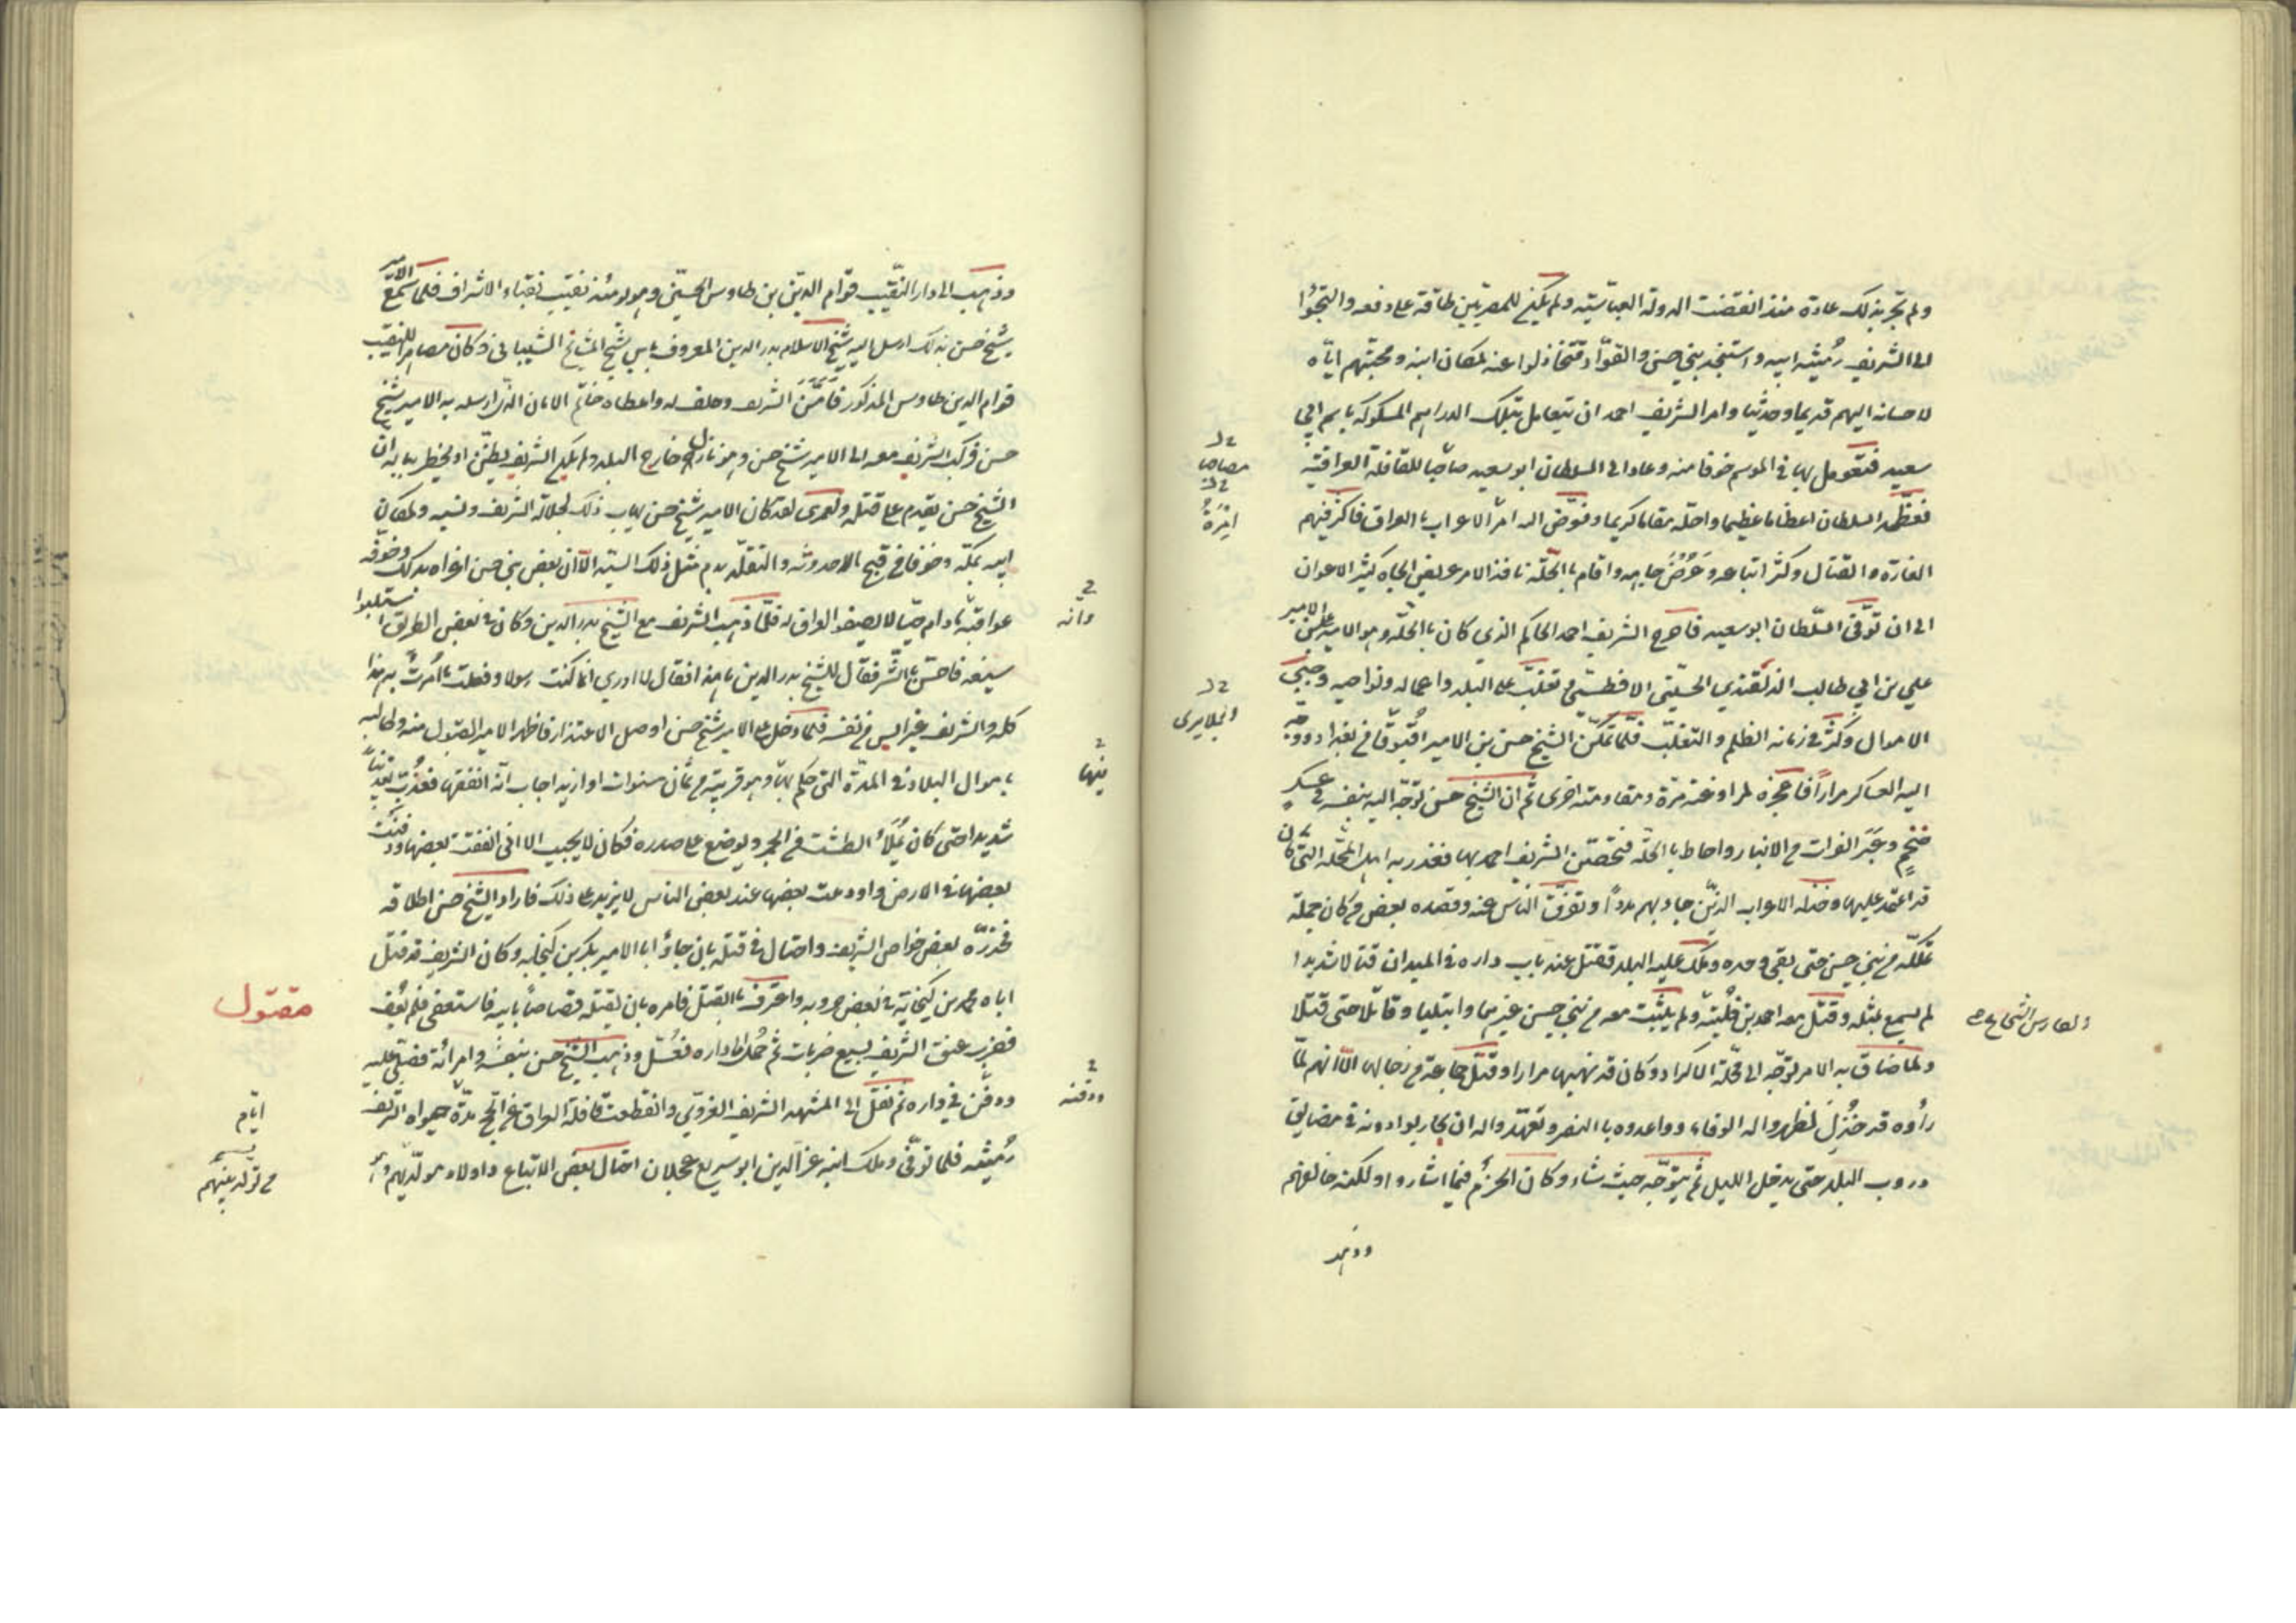 ولم تجر بذلك عادة منذ انقضت الدولة العباسية ولم يكن للمصريين طاقة على دفعه والتجؤا
الى الشريف رميثه ابيه واستنجد بني حسن والقواد فتخاذلوا عنه لمكان ابنه ومحبتهم اياه
لاحسانه اليهم قديما وحديثا وامر الشريف احمد ان يتعامل بتلك الدراهم المسكوكه باسم ابي
سعيد فتعومل بها في الموسم خوفا منه وعاد الى السلطان ابو سعيد صاحبا للقافلة العراقية
فعظمه السلطان اعظاما عظيما واحله مقاما كريما وفوض اليه امر الاعراب بالعراق فاكثر فيهم
الغارة والقتال وكثر اتباعه وعرض جاهه واقام بالحلة نافذ الامر عريض الجاه كثير الاعوان
الى ان توفى السلطان ابو سعيد فاخرج الشريف احمد الحاكم الذي كان بالحلة وهو الامير علي بن الامير
علي بن ابي طالب الدلقندي الحسيني الافطسي وتغلب على البلد واعماله ونواحيه وجبى
الاموال وكثر في زمانه الظلم والتغلب فلما تمكن الشيخ حسن بن الامير اقبوقا في بغداد ووجه
اليه العساكر مرارا فاعجزه لمراوغته مرة ومقاومته اخرى ثم ان الشيخ حسن توجه اليه بنفسه في عسكر
ضخم وعبر الفرات من الانبار واحاط بالحلة فتحصن الشريف احمد بها فغدر به اهل المحلة التي كان
قد اعتمد عليها وخذله الاعراب الذين جاء بهم مددا وتفرق الناس عنه وقصده بعض من كان جملة
تملكه من بني حسن حتى بقى وحده وملك عليه البلد فقتل عند باب داره في الميدان قتالا شديدا
لم يسمع بمثله وقتل معه احمد بن فليته ولم يثبت معه من بني حسن غيرهما وابتليا وقاتلا حتى قتلا
ولما ضاق به الامر توجه الى محلة الاكراد وكان قد نهبها مرارا وقتل جماعة من رجالها الا انهم لما
رأوه قد خذل اظهروا له الوفاء وواعدوه بالنصر وتعهدوا له ان يحاربوا دونه في مضايق
دروب البلد حتى يدخل الليل ثم يتوجه حيث شاء وكان الحزم فيما اشاروا ولكنه خالفهم
وذهب
مصاحبا
امرة
الجلايرى
الفارس الشجاع
وذهب الى دار النقيب قوام الدين بن طاوس الحسني وهو يومئذ نقيب نقباء الاشراف فلما سمع الامير
شيخ حسن بذلك ارسل اليه شيخ الاسلام بدر الدين المعروف بابن شيخ المشايخ الشيباني وكان مصاهرا للنقيب
قوام الدين طاوس المذكور فامن الشريف وحلف له واعطاه خاتم الامان الذي ارسله به الامير شيخ
حسن فركب الشريف معه الى الامير شيخ حسن وهو نازل خارج البلد ولم يكن الشريف يظن او يخطر بباله ان
الشيخ حسن يقدم على قتله ولعمرى لقد كان الامير شيخ حسن يهاب ذلك لجلالة الشريف ونسبه ولمكان
ابيه بمكة وخوفا من قبح الاحدوثه والتقلد بدم مثل ذلك السيد الا ان بعض بني حسن اغراه بذلك وخوفه
عواقبه ما دام حيا لا يصفو العراق له فلما ذهب الشريف مع الشيخ بدر الدين وكان في بعض الطريق استلبوا
سيفه فاحس بالشر فقال للشيخ بدر الدين ما هذا فقال لا ادري انما كنت رسولا وفعلت ما امرت به هذا
كله والشريف غير آيس من نفسه فلما دخل على الامير شيخ حسن اوصل الاعتذار فاظهر الامير القبول منه وطالبه
باموال البلاد في المدة التي حكم بها وهو قريب من ثمان سنوات او ازيد اجاب انه انفقها فعذب تعذيبا
شديدا حتى كان يملأ الطشت من الجمر ويوضع على صدره فكان لا يجيب الا اني انفقت بعضها ودفنت
بعضها في الارض واودعت بعضها عند بعض الناس لا يزيد على ذلك فاراد الشيخ حسن اطلاقه
فحذره بعض خواص الشريف واحتال في قتله بان جاؤا بالامير بكر بن كنجايه وكان الشريف قد قتل
اباه محمد بن كنجايه في بعض حروبه واعترف بالقتل فامره بان يقتله قصاصا بابيه فاستعفى فلم يعف
فضرب عنق الشريف بسبع ضربات ثم حمل الى داره فغسل وذهب الشيخ حسن بنفسه وامرائه فصلى عليه
ودفن في داره ثم نقل الى المشهد الشريف الغروي وانقطعت قافلة العراق عن الحج مدة حيوة الشريف
رميثه فلما توفى وملك ابنه عز الدين ابو سريع عجلان احتال بعض الاتباع
وانه
منها
ودفنه
مقتول
ايام